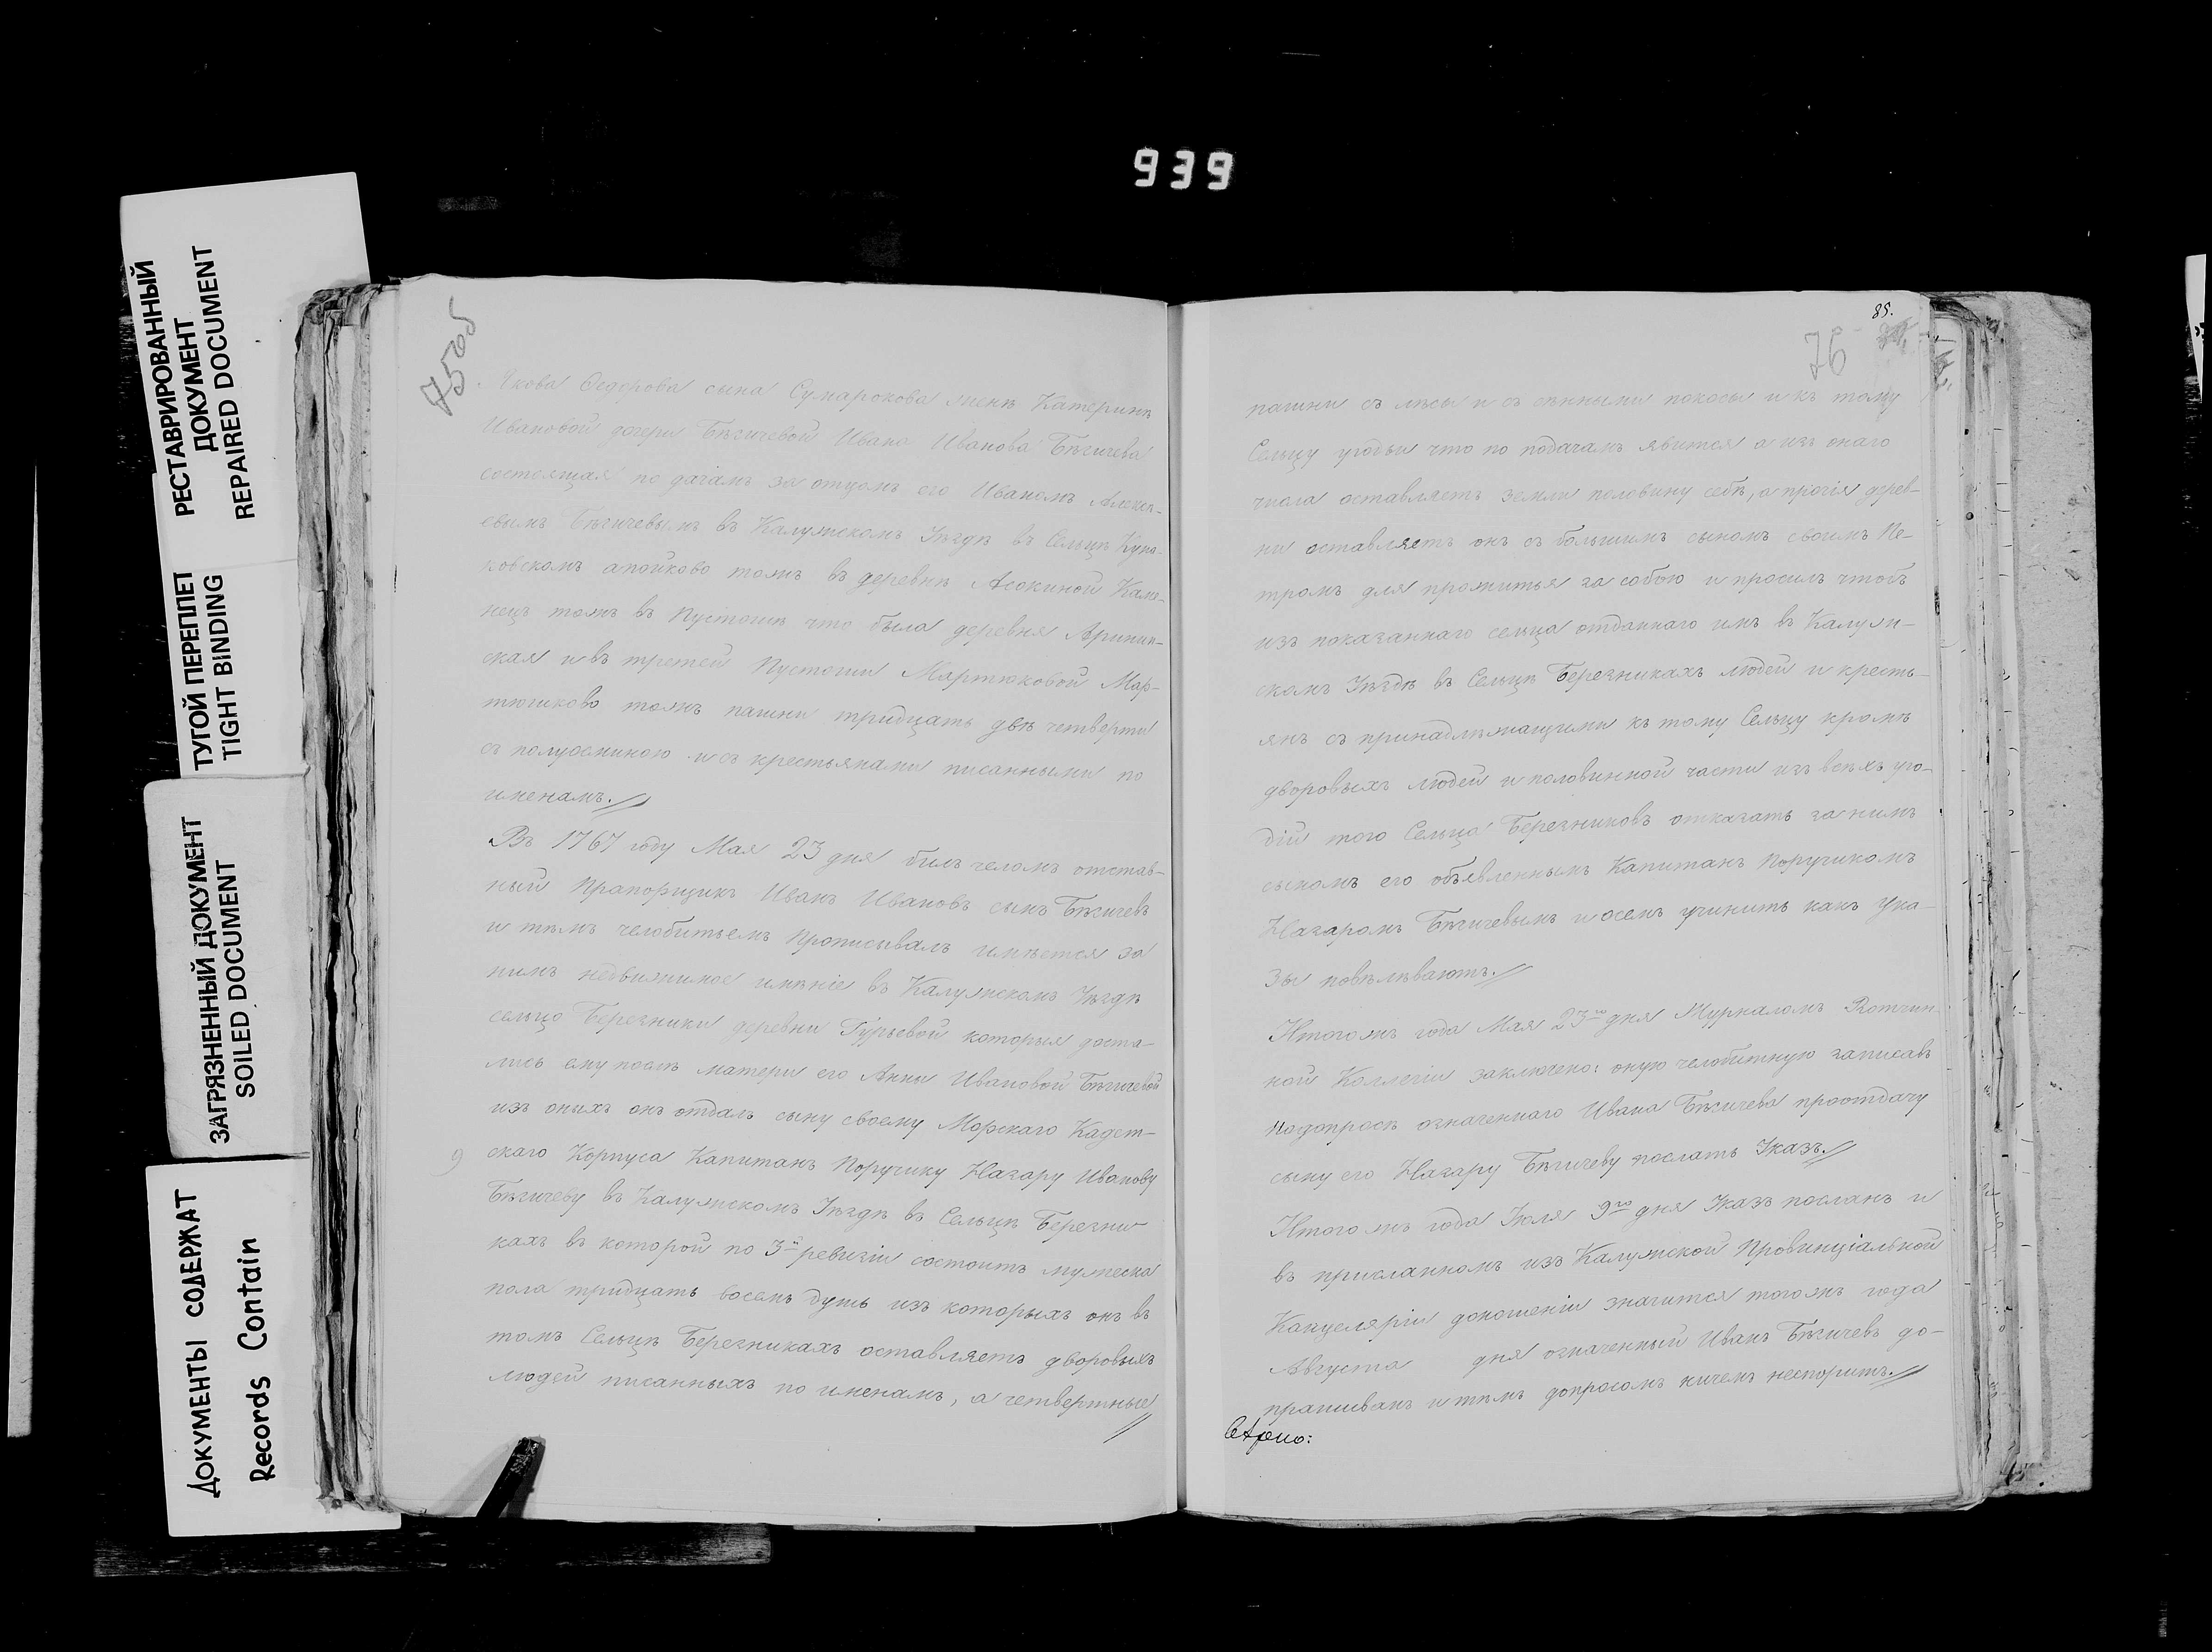 939
РЕСТАВРИРОВАННЫЙ
ДОКУМЕНТ
REPAIRED DOCUMENT
ТУГОЙ ПЕРЕПЛЕТ
TIGHT BINDING
ЗАГРЯЗНЕННЫЙ ДОКУМЕНТ
SOILED DOCUMENT
ДОКУМЕНТЫ СОДЕРЖАТ
Records Contain
75об
Якова Федорова сына Сумарокова женѣ Катеринѣ
Ивановой дочери Бѣгичевой Ивана Иванова Бѣгичева
состоящая по дачамъ за отцомъ его Иваномъ Алексѣ-
евымъ Бѣгичевымъ въ Калужскомъ Уѣздѣ въ Сельцѣ
апойково тожъ въ деревнѣ Асокиной Каме-
нецъ тожъ въ Пустошѣ что была деревня
ская и въ третей Пустоши Мартюковой Мар-
тюшково тожъ пашни тридцать двѣ четверти
съ полуосминою и съ крестьянами писанными по
именамъ.//
Въ 1767 году Мая 23 дня билъ челомъ отстав-
ный Прапорщикъ Иванъ Ивановъ сынъ Бѣгичевъ
и тѣмъ челобитьемъ прописывалъ имѣется за
нимъ недвижимое имѣніе въ Калужскомъ Уѣздѣ
сельцо Березники деревни Гурьевой которыя доста-
лись ему послѣ матери его Анны Ивановой Бѣгичевой
изъ оныхъ онъ отдалъ сыну своему Морскаго Кадет-
9
скаго Корпуса Капитанъ Поручику Назару Иванову
Бѣгичеву въ Калужскомъ Уѣздѣ въ Сельцѣ Березни
кахъ въ которой по 3й ревизіи состоитъ мужеска
пола тридцать восемь душъ изъ которыхъ онъ въ
томъ Сельцѣ Березникахъ оставляетъ дворовыхъ
людей писанныхъ по именамъ, а четвертные
//
85.
76
пашни съ лѣсы и съ сѣнными покосы и къ тому
Сельцу угодьи что по подачамъ явится а изъ онаго
числа оставляетъ земли половину себѣ, а прочія дерев-
ни оставляетъ онъ съ большимъ сыномъ своимъ Пе-
тромъ для прожитья за собою и просилъ чтобъ
изъ показаннаго сельца отданнаго имъ въ Калуж-
скомъ Уѣздѣ въ Сельцѣ Березникахъ людей и кресть-
янъ съ принадлѣжащими къ тому Сельцу кромѣ
дворовыхъ людей и половинной части изъ всѣхъ уго-
дій того Сельца Березниковъ отказать за нимъ
сыномъ его объявленнымъ Капитанъ Поручикомъ
Назаромъ Бѣгичевымъ и осемъ учинить какъ Ука-
зы повѣлѣваютъ.//
И того жъ года Мая 23го дня Журналомъ Вотчин-
ной Коллегіи заключено: оную челобитную записавъ
о допросѣ означеннаго Ивана Бѣгичева проотдачу
сыну его Назару Бѣгичеву послать Указъ.//
И того жъ года Іюля 9го дня Указъ посланъ и
въ присланномъ изъ Калужской Провинціальной
Канцеляріи доношеніи значится того жъ года
Августа дня означенный Иванъ Бѣгичевъ до-
прашиванъ и тѣмъ допросомъ ничемъ неспоритъ.//